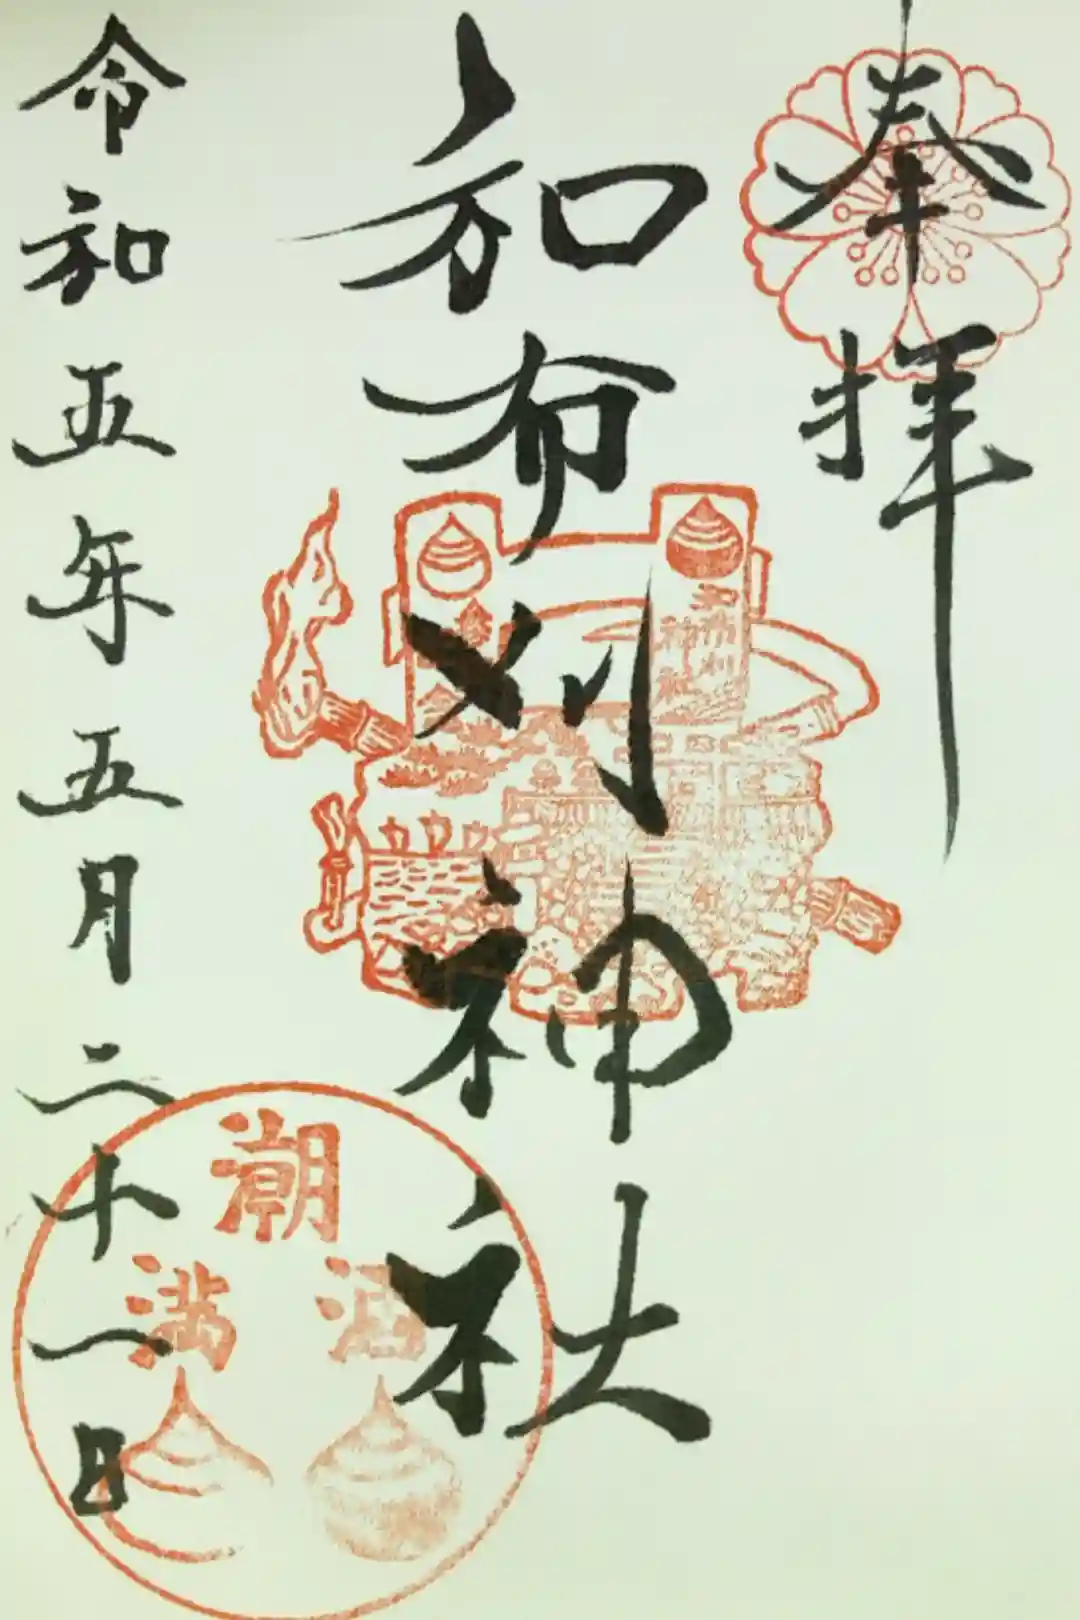 奉拝
和布刈神社
和布刈
神社
潮
満
涸
令和五年五月二十一日